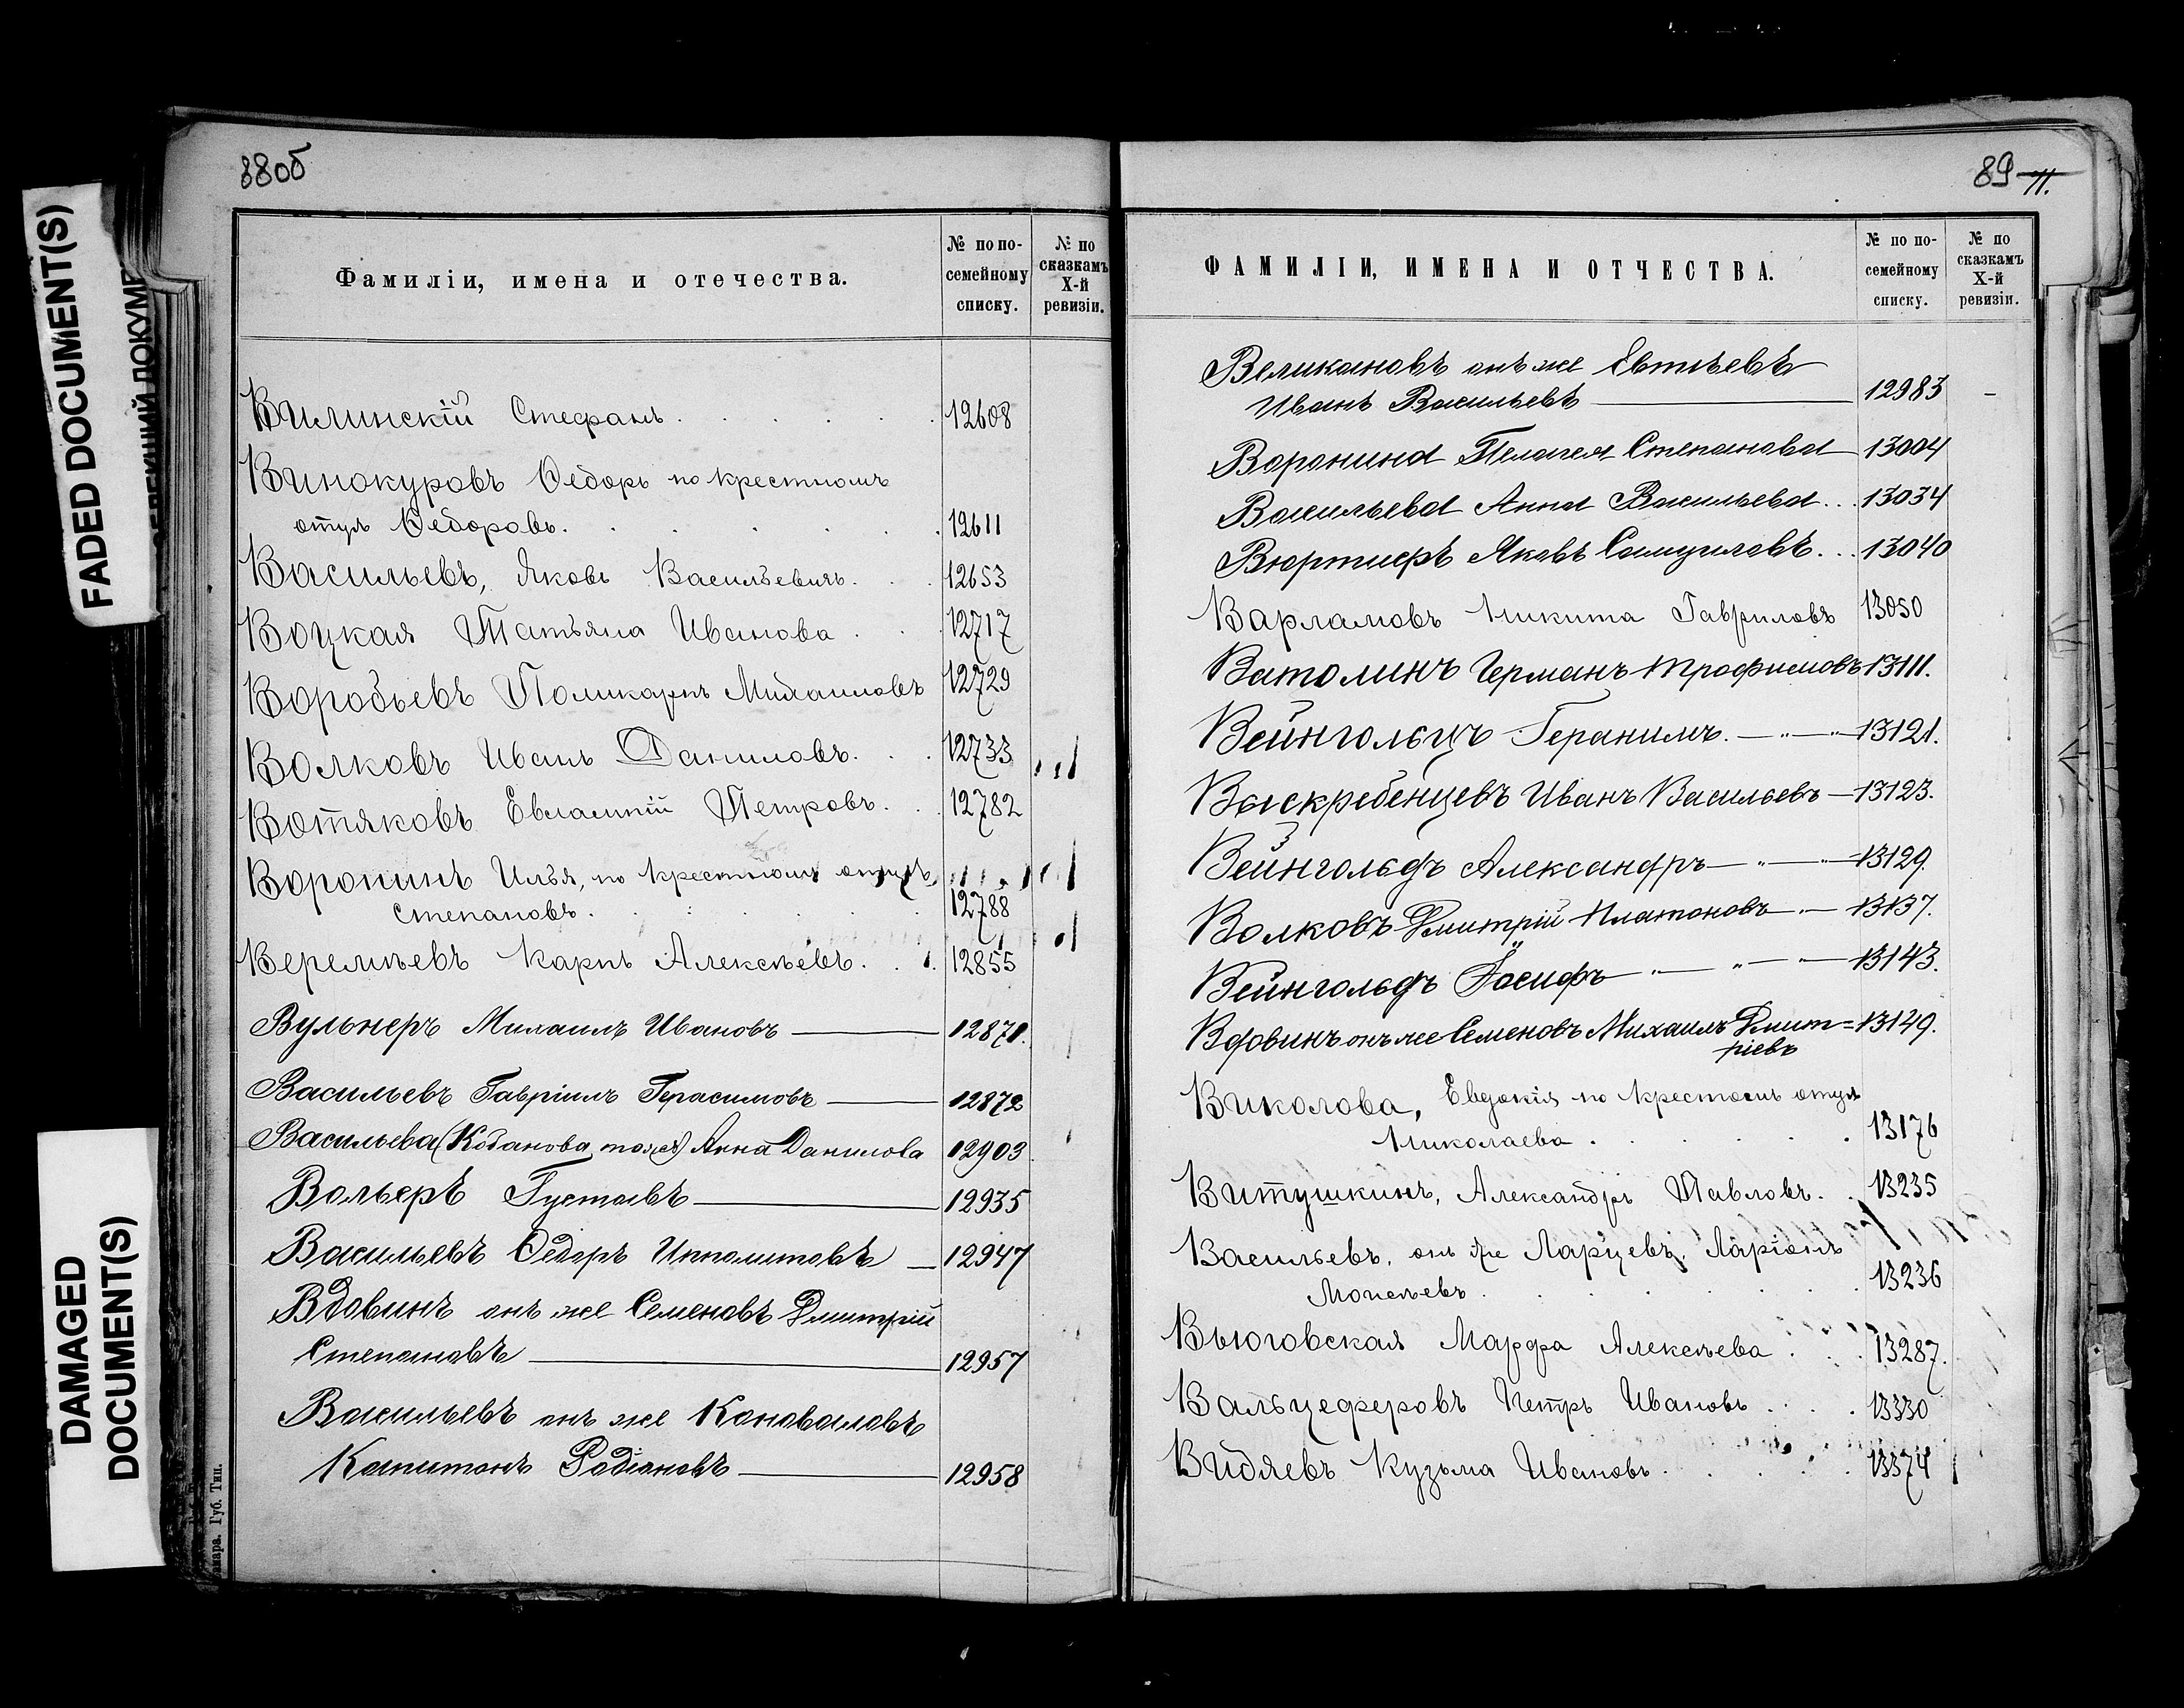 FADED DOCUMENT(S)
DAMAGED
DOCUMENT(S)
88об
Фамиліи, имена и отечества.
№ по по-
семейному
списку.
№ по
сказкамъ
X-й
ревизіи.
Вилинскій Стефанъ. 12608
Винокуровъ Ѳедоръ по крестному
отцу Ѳедоровъ. 12611
Васильевъ, Яковъ Васильевичъ. 12653
Воцкая Татьяна Иванова 12717
Воробьевъ Поликарпъ Михаиловъ 12729
Волковъ Иванъ Даниловъ. 12733
Вотяковъ Евлампій Петровъ. 12782
Воронинъ Илья, по крестному отцу,
Степановъ. 12788
Веремѣевъ Карпъ Алексѣевъ. 12855
Вульнеръ Михаилъ Ивановъ 12871.
Васильевъ Гавріилъ Герасимовъ 12872
Васильева (Кабанова тожъ) Анна Данилова 12903
Вольеръ Густавъ 12935
Васильевъ Ѳедоръ Ипполитовъ 12947
Вдовинъ онъ же Семеновъ Дмитрій
Степановъ 12957
Васильевъ онъ же Коноваловъ
Капитонъ Родіоновъ 12958
Губ. Тип.
89 11.
ФАМИЛІИ, ИМЕНА И ОТЧЕСТВА.
№ по по-
семейному
списку.
№ по
сказкамъ
X-й
ревизіи.
Великановъ онъ же Евтѣевъ
Иванъ Васильевъ 12983
Воронина Пелагея Степанова 13004
Васильева Анна Васильева 13034
Вюртнеръ Яковъ Самуиловъ 13040
Варламовъ Никита Гавриловъ 13050
Ватолинъ Германъ Трофимовъ 13111.
Вейнгольцъ Геранимъ. 13121.
Выскребенцевъ Иванъ Васильевъ 13123.
Вейнгольдъ Александръ 13129.
Волковъ Дмитрій Платоновъ 13137.
Вейнгольдъ Іосифъ 13143.
Вдовинъ онъ же Семеновъ Михаилъ Дмит= 13149.
ріевъ
Виколова, Евдокія по крестному отцу
Николаева 13176
Витушкинъ, Александръ Павловъ. 13235
Васильевъ, онъ же Ларцевъ, Ларіонъ
Мокѣевъ 13236
Вьюговская Марфа Алексѣева 13287.
Вальцеферовъ Петръ Ивановъ 13330
Видяевъ Кузьма Ивановъ 13374